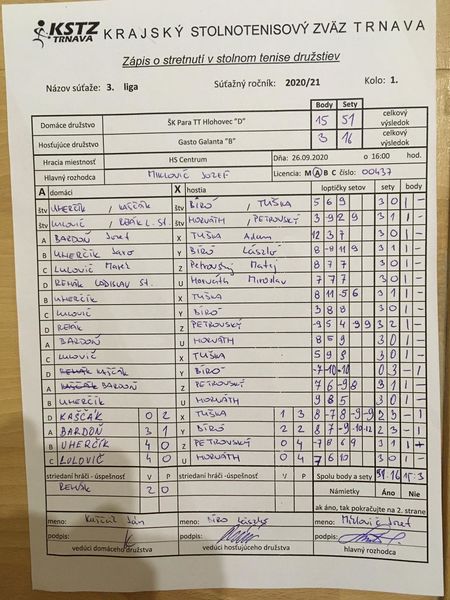 KSTZ TRNAVA KRAJSKÝ STOLNOTENISOVÝ ZVÄZ TRNAVA
Zápis o stretnutí v stolnom tenise družstiev
Názov súťaže: 3. liga Súťažný ročník: 2020/21 Kolo: 1.
Body Sety
Domáce družstvo ŠK Para TT Hlohovec "D" 15 51 celkový výsledok
Hosťujúce družstvo Gasto Galanta "B" 3 16 celkový výsledok
Hracia miestnosť HS Centrum Dňa: 26.09.2020 o 16:00 hod.
Hlavný rozhodca MIKLOVIČ JOZEF Licencia: M A B C číslo: 00437
A domáci X hostia loptičky setov sety body
štv UHERČÍK / KAŠČÁK štv BÍRÓ / TUŠKA 5 6 9 3 0 1 -
štv LULOVIČ / REHÁK L. St. štv HORVÁTH / PETROVSKÝ 3 -9 2 9 3 1 1 -
A BARDOŇ Jozef X TUŠKA Adam 12 3 7 3 0 1 -
B UHERČÍK Jaro Y BÍRÓ László 8 -8 11 9 3 1 1 -
C LULOVIČ Maroš Z Petrovský Matej 8 7 7 3 0 1 -
D REHÁK LADISLAV St. U Horváth Miroslav 7 7 7 3 0 1 -
B UHERČÍK X TUŠKA 8 11 -5 6 3 1 1 -
C LULOVIČ Y BÍRÓ 3 8 8 3 0 1 -
D REHÁK Z PETROVSKÝ -9 5 4 -9 9 3 2 1 -
A BARDOŇ U HORVÁTH 8 5 9 3 0 1 -
C LULOVIČ X TUŠKA 5 9 8 3 0 1 -
D KAŠČÁK Y BÍRÓ -7 -10 -10 0 3 - 1
A BARDOŇ Z PETROVSKÝ 7 6 -9 8 3 1 1 -
B UHERČÍK U HORVÁTH 9 8 5 3 0 1 -
D KAŠČÁK 0 2 X TUŠKA 1 3 8 -7 8 -9 -9 2 3 - 1
A BARDOŇ 3 1 Y BÍRÓ 2 2 8 7 -9 -10 -12 2 3 - 1
B UHERČÍK 4 0 Z PETROVSKÝ 0 4 -7 8 6 9 3 1 1
C LULOVIČ 4 0 U HORVÁTH 0 4 7 6 10 3 0 1 -
striedaní hráči -úspešnosť V P striedaní hráči -úspešnosť V P Spolu body a sety 51:16 15:3
REHÁK 2 0 Námietky Áno Nie
ak áno, tak pokračujte na 2. strane
meno: Kaščák Ján meno: Bíró László meno: Miklovič Jozef
podpis: podpis: podpis:
vedúci domáceho družstva vedúci hosťujúceho družstva hlavný rozhodca